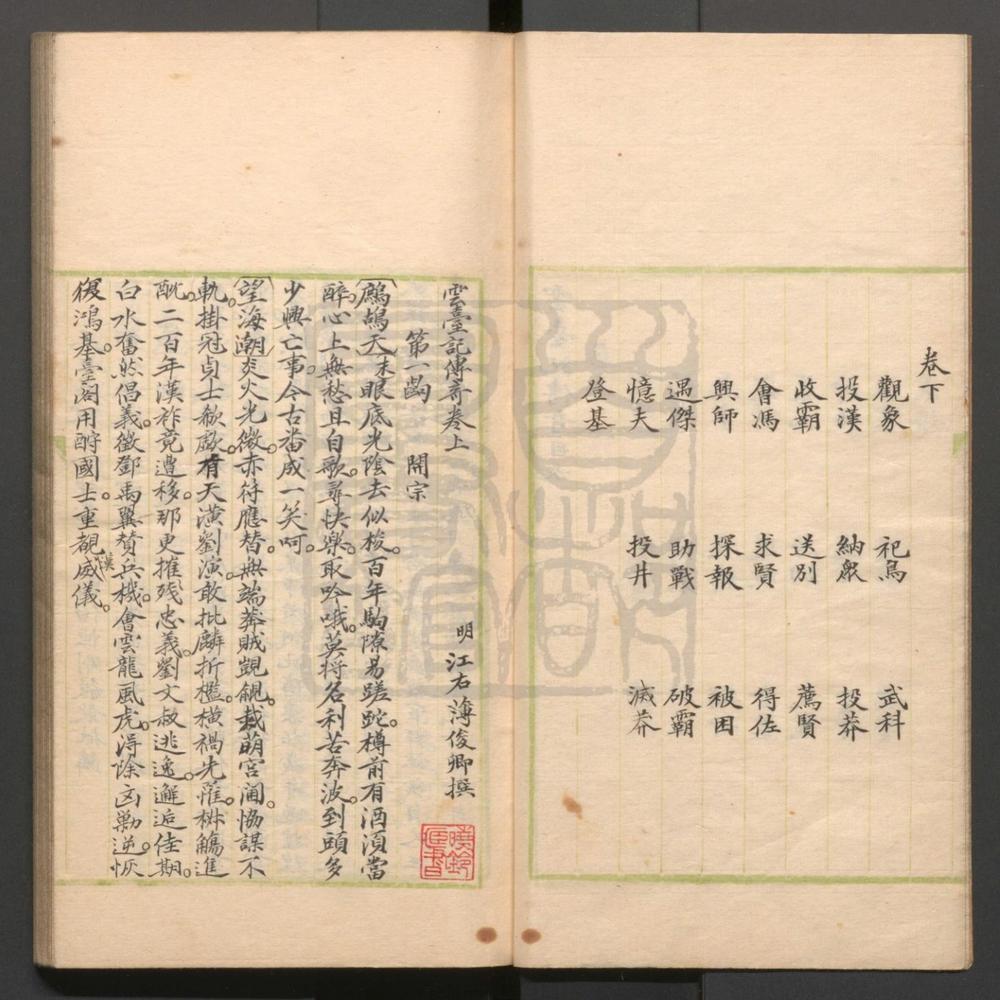 卷下
觀象 祀鳥 武科
投漢 納眾 投莽
收霸 送別 薦賢
會馮 求賢 得佐
興師 探報 被困
遇傑 助戰 破霸
憶夫 投井 滅莽
登基
雲臺記傳奇卷上 明 江右薄俊卿撰
第一齣 開宗
鷓鴣天末眼底光陰去似梭。百年駒隙易蹉跎。樽前有酒須當
醉。心上無愁且自歌。尋快樂。取吟哦。莫將名利苦奔波。到頭多
少興亡事。今古番成一笑呵。
望海潮炎火光微。赤符應替。無端莽賊覬覦。載萌宮闈。恊謀不
軌。掛冠貞士欷歔。有天潢劉演。敢批麟折檻。橫禍先罹。枡觴進
酖。二百年漢祚竟遭移。那更摧殘忠義。劉文叔逃逸。邂逅佳期。
白水奮然倡義。徵鄧禹翼贊兵機。會雲龍風虎。得除凶勦逆。恢
復鴻基。臺閣用酧國士。重覩漢威儀。